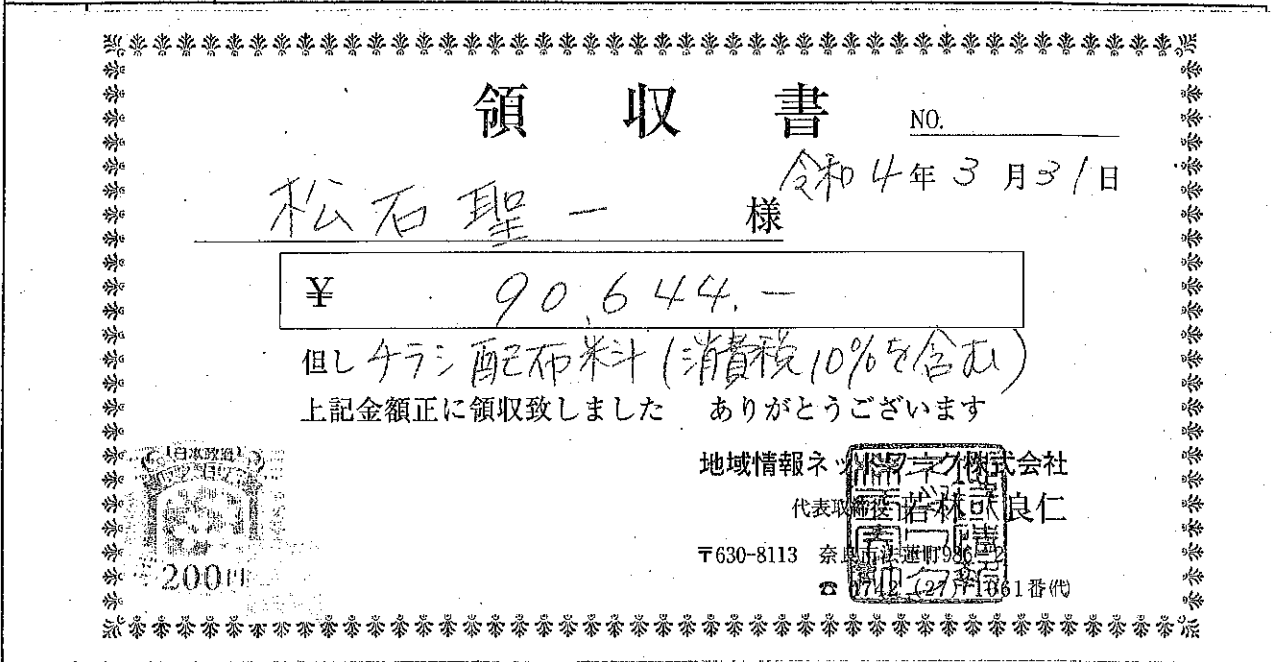 領収書 NO.
令和4年3月31日
松石聖一 様
¥ 90,644.-
但し チラシ配布料(消費税10%を含む)
上記金額正に領収致しました ありがとうございます
日本政府
200円
地域情報ネットワーク株式会社
代表取締役 若林 良仁
〒630-8113 奈良市法蓮町986-2
☎ 0742-(27)-1061番(代)